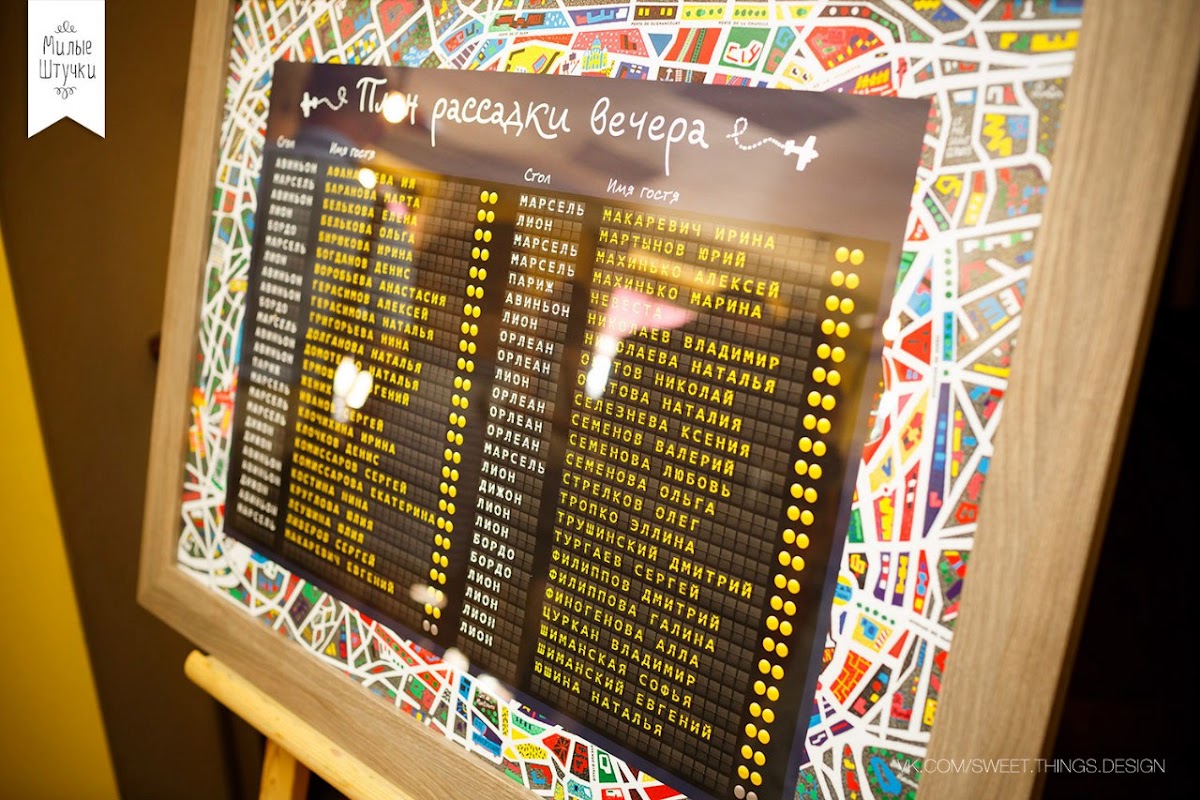 Милые
Штучки
План рассадки вечера
Стол Имя гостя
АВИНЬОН
МАРСЕЛЬ БАРАНОВА МАРТА
АВИНЬОН БЕЛЬКОВА ЕЛЕНА
ЛИОН БЕЛЬКОВА ОЛЬГА
БОРДО БИРЮКОВА ИРИНА
МАРСЕЛЬ БОГДАНОВ ДЕНИС
ЛИОН ВОРОБЬЕВА АНАСТАСИЯ
АВИНЬОН ГЕРАСИМОВ АЛЕКСЕЙ
АВИНЬОН ГЕРАСИМОВА НАТАЛЬЯ
БОРДО ГРИГОРЬЕВА НИНА
МАРСЕЛЬ ДОЛГАНОВА НАТАЛЬЯ
АВИНЬОН НАТАЛЬЯ
АВИНЬОН
ПАРИЖ ЖЕНИХ
МАРСЕЛЬ СЕРГЕЙ
МАРСЕЛЬ КЛОЧИХИНА ИРИНА
МАРСЕЛЬ КЛОЧКОВ ДЕНИС
ДИЖОН КОМИССАРОВ СЕРГЕЙ
ДИЖОН КОМИССАРОВА ЕКАТЕРИНА
АВИНЬОН КОСТИНА НИНА
ДИЖОН КРУГЛОВА ЮЛИЯ
АВИНЬОН ЛЕУШИНА ЮЛИЯ
МАРСЕЛЬ ЛИФЕРОВ СЕРГЕЙ
МАКАРЕВИЧ ЕВГЕНИЙ
Стол Имя гостя
МАРСЕЛЬ МАКАРЕВИЧ ИРИНА
ЛИОН МАРТЫНОВ ЮРИЙ
МАРСЕЛЬ МАХИНЬКО АЛЕКСЕЙ
МАРСЕЛЬ МАХИНЬКО МАРИНА
ПАРИЖ НЕВЕСТА
АВИНЬОН НИКОЛАЕВ ВЛАДИМИР
ЛИОН НИКОЛАЕВА НАТАЛЬЯ
ОРЛЕАН НИКОЛАЙ
ОРЛЕАН НАТАЛИЯ
ЛИОН СЕЛЕЗНЕВА КСЕНИЯ
ОРЛЕАН СЕМЕНОВ ВАЛЕРИЙ
ОРЛЕАН СЕМЕНОВА ЛЮБОВЬ
ОРЛЕАН СЕМЕНОВА ОЛЬГА
МАРСЕЛЬ СТРЕЛКОВ ОЛЕГ
ЛИОН ТРОПКО ЭЛЛИНА
ДИЖОН ТРУШИНСКИЙ ДМИТРИЙ
ЛИОН ТУРГАЕВ СЕРГЕЙ
ЛИОН ФИЛИППОВ ДМИТРИЙ
БОРДО ФИЛИППОВА ГАЛИНА
БОРДО ФИНОГЕНОВА АЛЛА
ЛИОН ЦУРКАН ВЛАДИМИР
ЛИОН ШИМАНСКАЯ СОФЬЯ
ЛИОН ШИМАНСКИЙ ЕВГЕНИЙ
ЛИОН ЮШИНА НАТАЛЬЯ
VK.COM/SWEET.THINGS.DESIGN